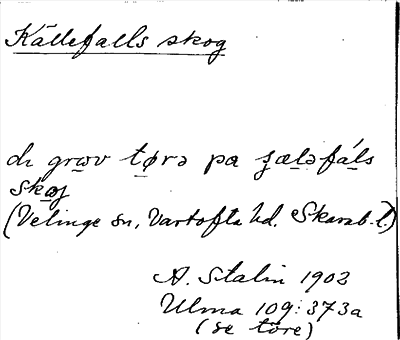 Källefalls skog
di grωv tørə pa ʒæləfáls
skωg
(Velinge sn, Vartofta hd. Skarab. l.)
A. Stalin 1902
Ulma 109:373a
(se tore)